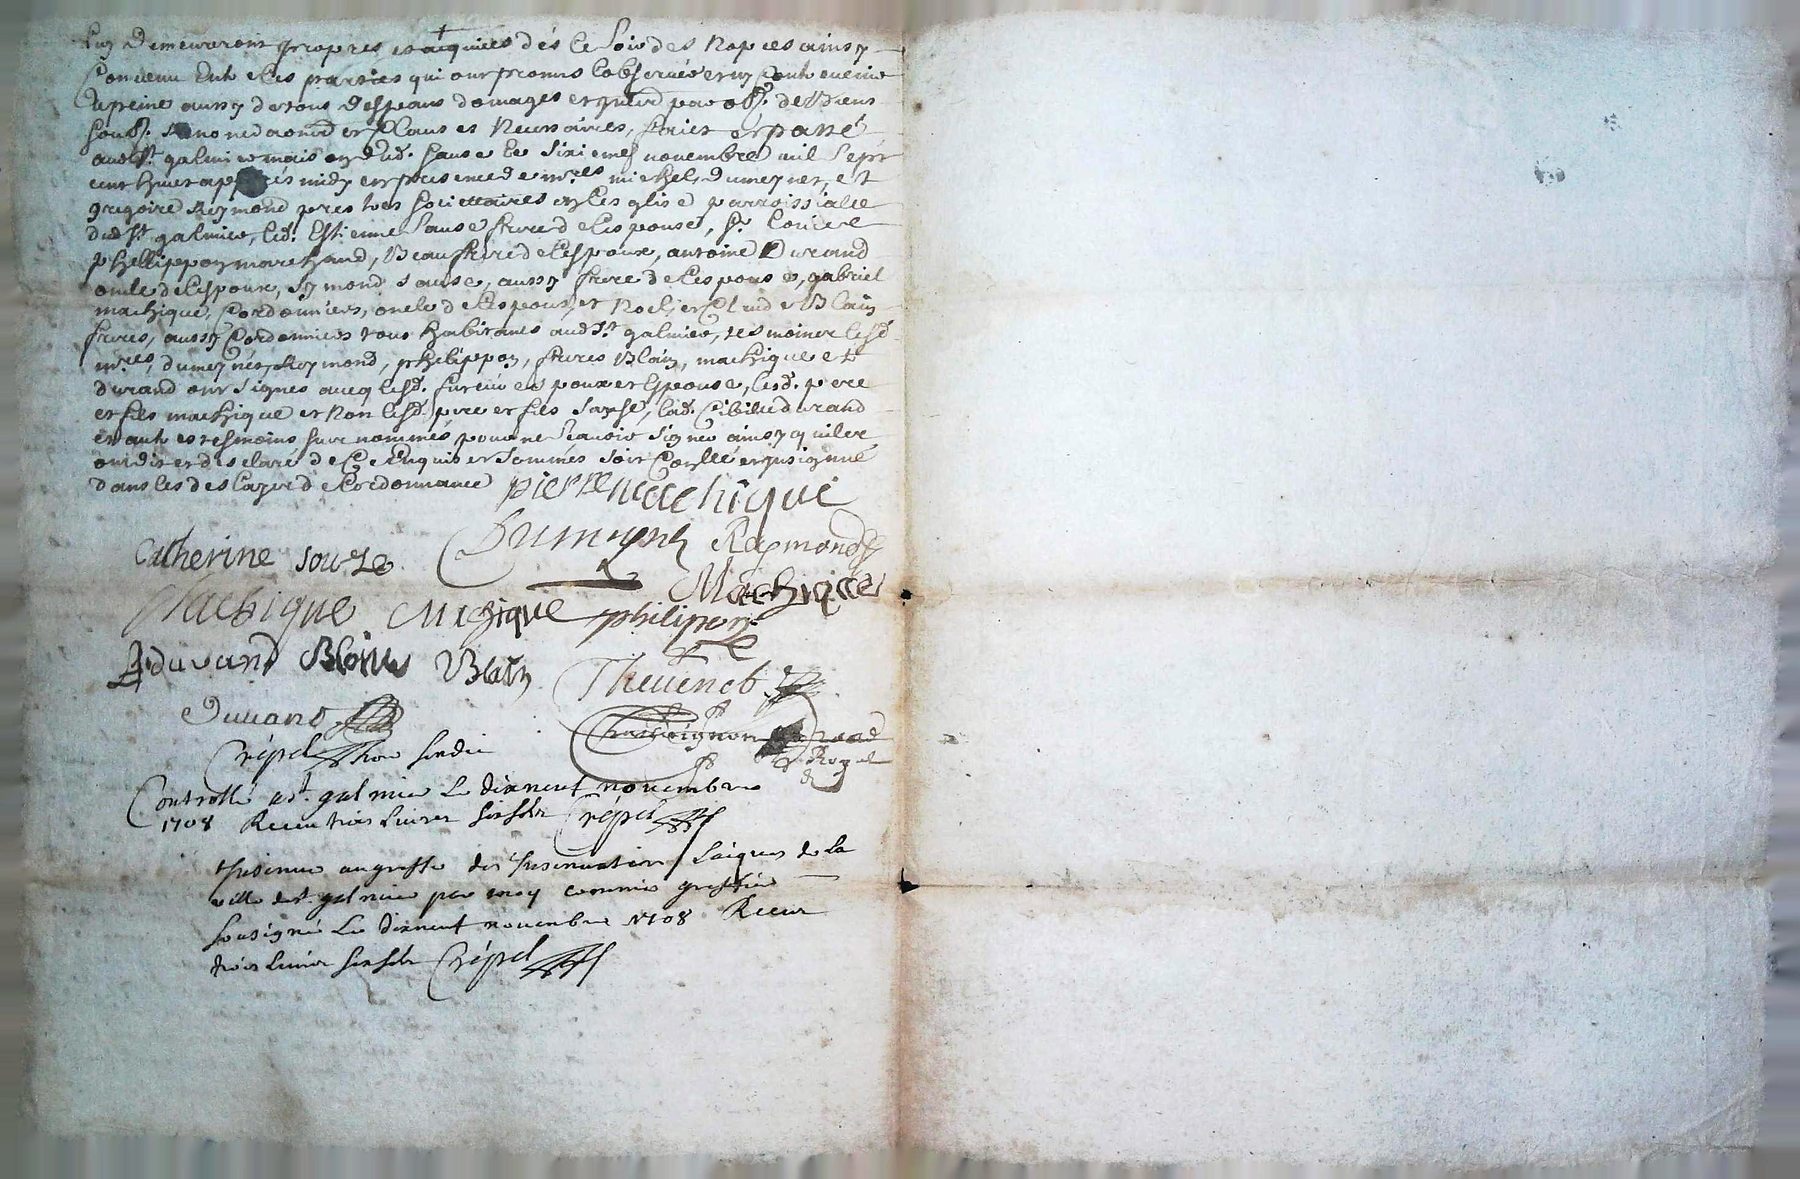 luy demeureront propres et acquises dés le soir des Nopces ainsy
convenu entre les parties qui ont promis l'observer et ny contrevenir
a peine aussy de tous despans domages et par obon. de biens
soubn. renonciaon et Claus es Necessaires, faict et passé
audt. St galmier maison dud. sause le sixieme novembre mil sept
cent huict apprés midy en presence de mres michel dumeynet, et
gregoire Reymond prestres societtaires en lesglise parroissialle
dud St galmier, led. Estienne sause frere de lespouse, sr.
phellippon marchand, Beaufrere de lespoux, antoine Durand
oncle de lespoux, symond sause, aussy frere de lespouse, gabriel
machique, Cordonniers, oncle de lespoux, et Noel, et Claude Blain
freres, aussy Cordonniers tous habitants audt St galmier, tesmoins lesd.
mres, dumeynet, Reymond, phelippon, freres Blain, machique et
durand ont signes avecq lesd. futeur espoux et espouse, lesd. pere
et fils machique et non lesd. pere et fils sause, lad. Cibille durand
et autres tesmoins sur nommés pour ne scavoir signer ainsy quils
ont dit et desclaré de Ce Enquis et sommés soit Conllé et insignué
dans les deslays de Lordonnance pierre machique
Catherine souze Dumeynet Raymond
Machique Machique philipon Machique
A durand Blain Blain Thevenet
Durand
Crépel pour sindic
Royal
Controllé a St. galmier Le dixneuf novembre
1708 Receu trois livres six sols Crépel
Insinué au greffe des Insinuations Laiques de La
ville de St. galmier par moy commis greffier
sousigné Le dixneuf novembre 1708 Receu
trois livres six sols Crépel